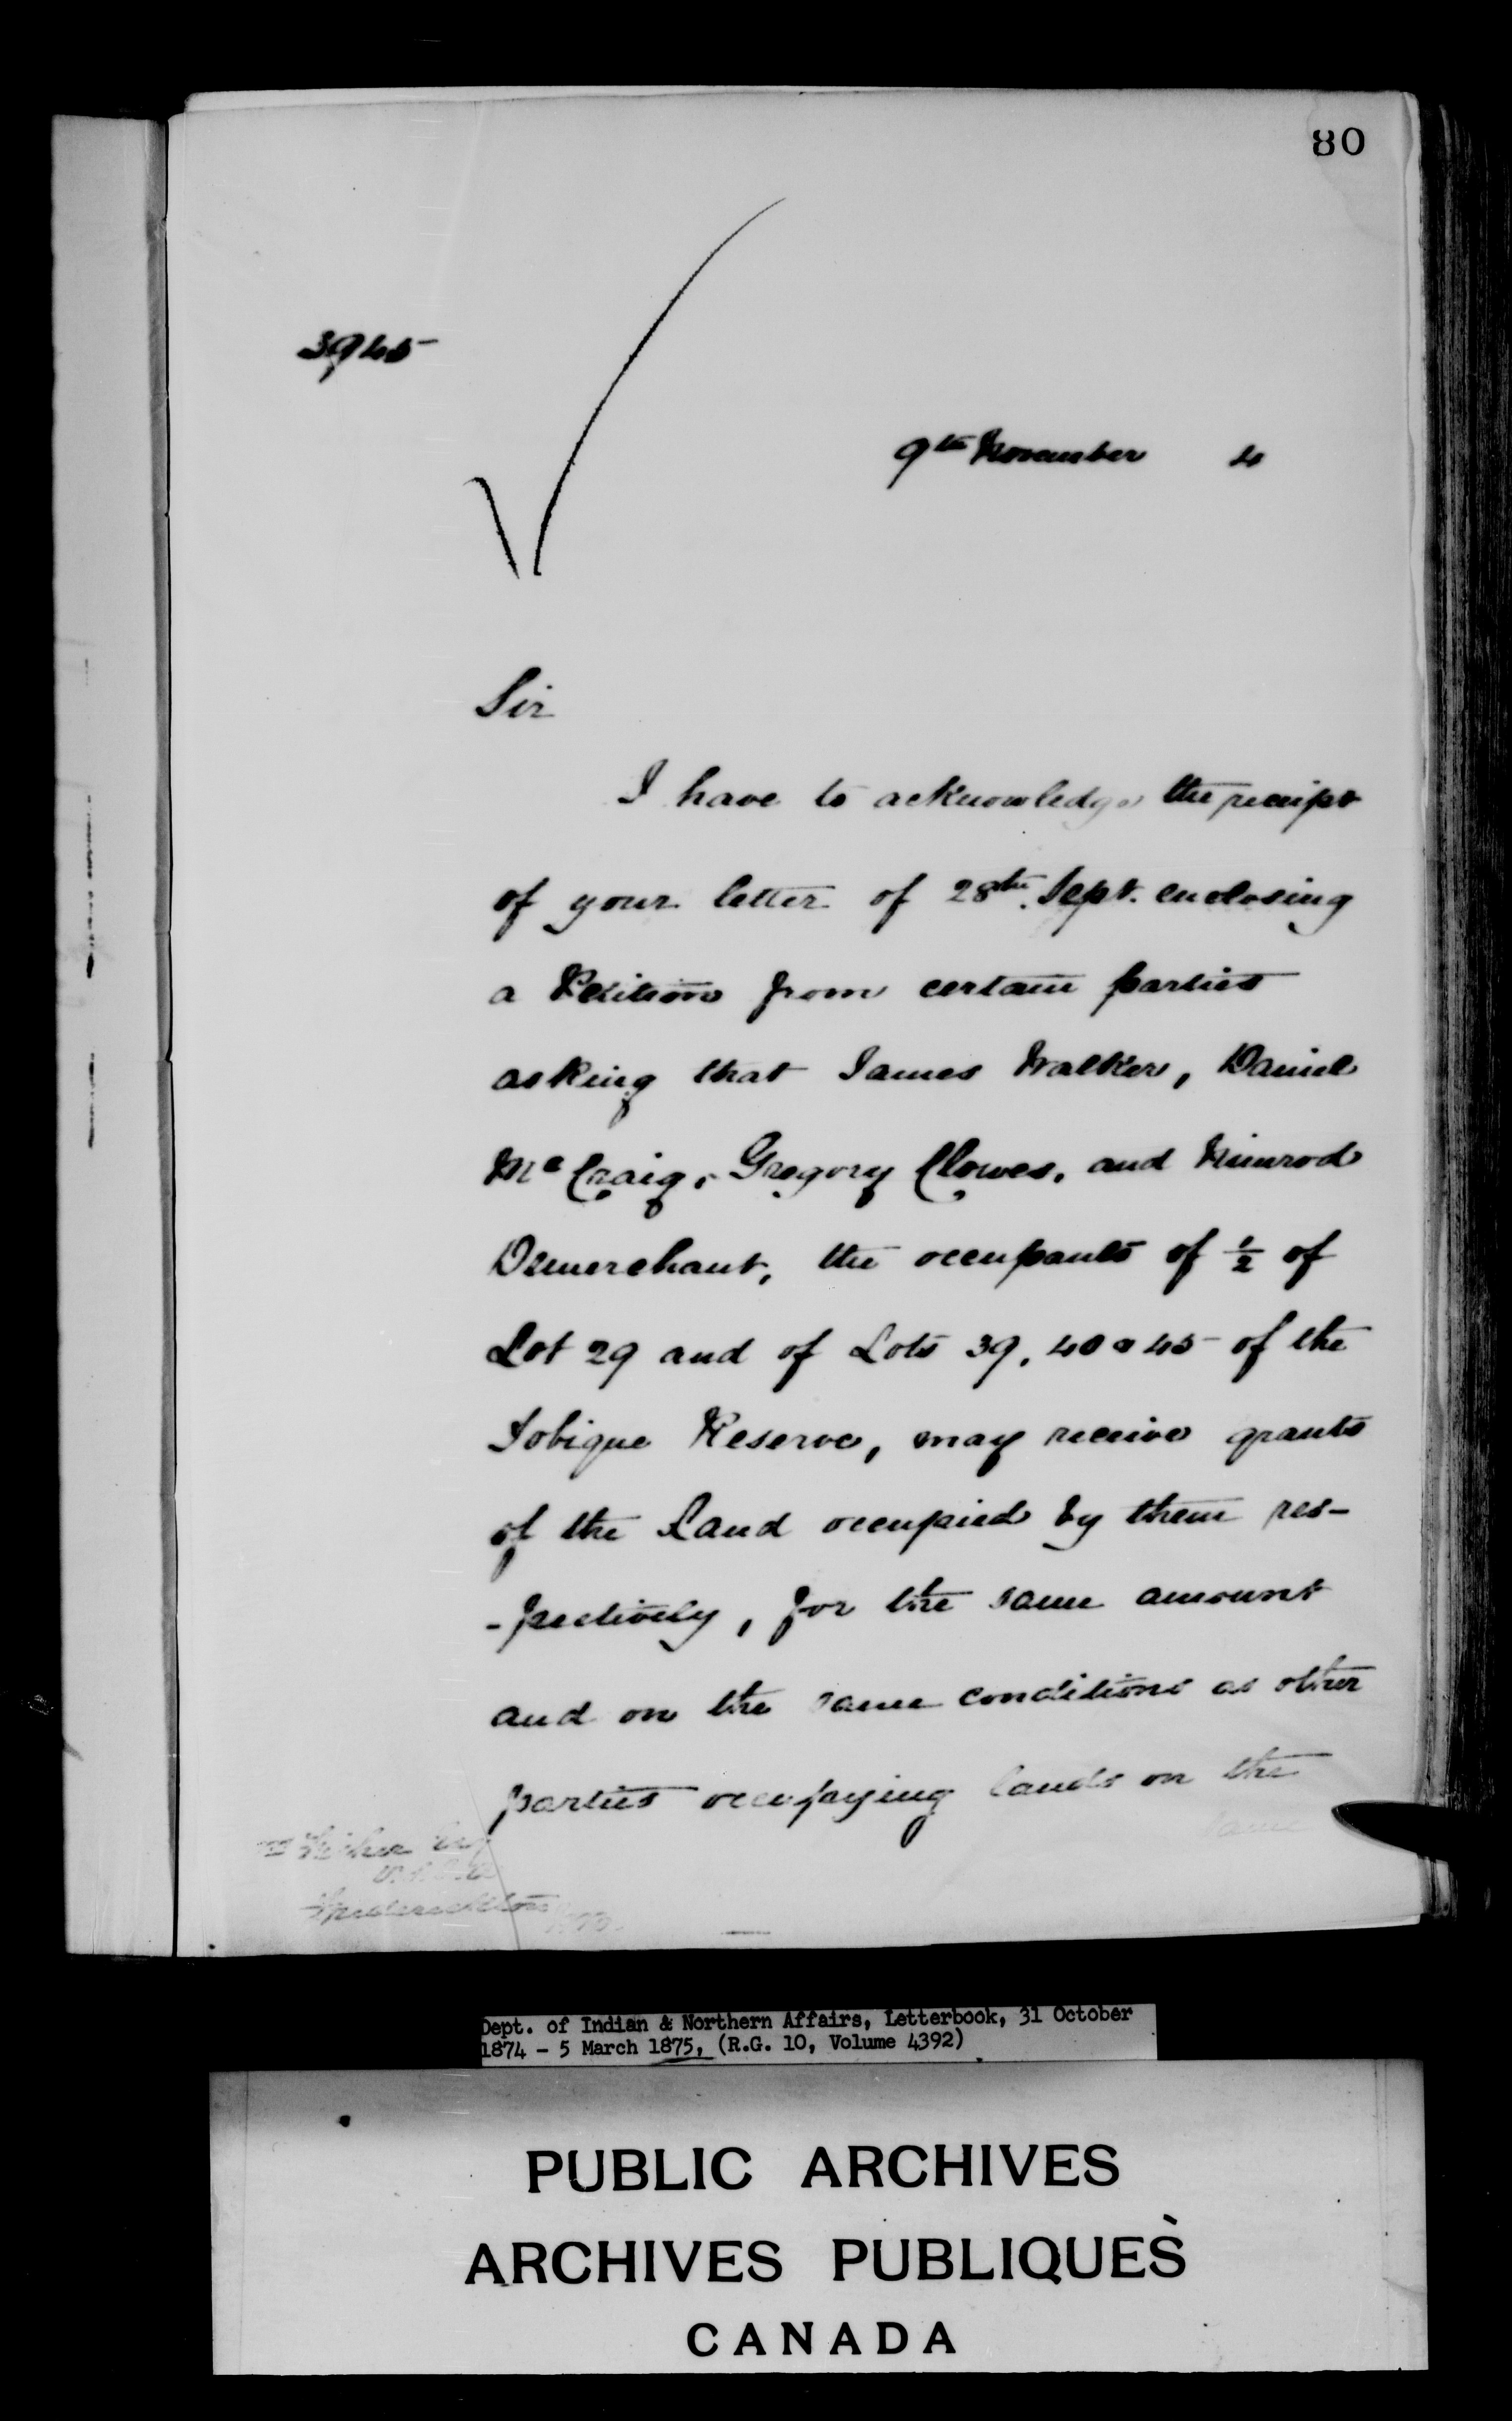 80
3945
9th November 4
Sir
I have to acknowledge the receipt
of your letter of 28th Sept. enclosing
a Petition from certain parties
asking that James Walker, Daniel
McCraig, Gregory Clowes, and Nimrod
Demerchant, the occupants of 1/2 of
Lot 29 and of Lots 39, 40 & 45 of the
Tobique Reserve, may receive grants
of the Land occupied by them res-
-pectively, for the same amount
and on the same conditions as other
parties occupying lands on the
same
Wm Fisher Esq
Fredericton
N.B.
Dept. of Indian & Northern Affairs, Letterbook, 31 October
1874 - 5 March 1875, (R.G. 10, Volume 4392)
PUBLIC ARCHIVES
ARCHIVES PUBLIQUES
CANADA